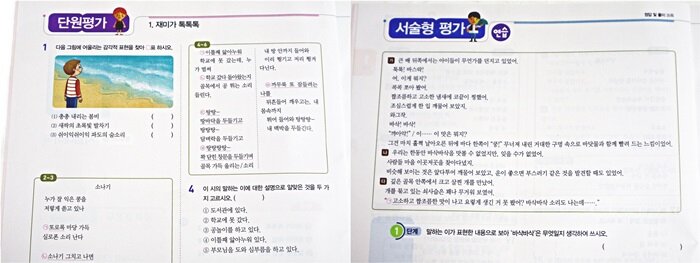 단원평가
1. 재미가 톡톡톡
1 다음 그림에 어울리는 감각적 표현을 찾아 ○표 하시오.
(1) 총총 내리는 봄비 ( )
(2) 새싹의 초록빛 발자기 ( )
(3) 쉬이익쉬이익 파도의 숨소리 ( )
2~3
소나기
누가 잘 익은 콩을
저렇게 쏟고 있나
㉠또로록 마당 가득
실로폰 소리 난다
소나기 그치고 나면
4~6
㉠이틀째 앓아누워
학교에 못 갔는데, 누
가 벌써
㉡학교 갔다 돌아왔는지
골목에서 공 튀는 소리
들린다.
㉢탕탕~
땅바닥을 두들기고
탕탕탕~
담벼락을 두들기고
㉣탕탕탕탕~
꽉 닫힌 창문을 두들기며
골목 가득 울리는 / 소리
내 방 안까지 들어와
이리 튕기고 저리 튕겨
다닌다.
㉤까무룩 또 잠들려는
나를
뒤흔들어 깨우고는, 내
몸속까지
튀어 들어와 탕탕탕~
내 맥박을 두들긴다.
4 이 시의 말하는 이에 대한 설명으로 알맞은 것을 두 가
지 고르시오. ( )
① 도서관에 있다.
② 학교에 못 갔다.
③ 공놀이를 하고 있다.
④ 이틀째 앓아누워 있다.
⑤ 부모님을 도와 심부름을 하고 있다.
서술형 평가
연습
정답 및 풀이
가 큰 배 뒤쪽에서는 아이들이 무언가를 던지고 있었어.
톡톡! 바스락!
어, 이게 뭐지?
콕콕 쪼아 봤어.
짭조름하고 고소한 냄새에 코끝이 찡했어.
조심스럽게 한 입 깨물어 보았지.
와그작.
바삭! 바삭!
"까아악!" / 이…… 이 맛은 뭐지?
그건 마치 훌쩍 날아오른 뒤에 바다 한쪽이 "쿵!" 무너져 내린 거대한 구멍 속으로 바닷물과 함께 빨려 드는 느낌이었어.
나 우리는 한동안 바삭바삭을 맛볼 수 없었지만, 잊을 수가 없었어.
사람들 마을 이곳저곳을 찾아다녔지.
비슷해 보이는 것은 알다투어 깨물어 보았고, 운이 좋으면 부스러기 같은 것을 발견할 때도 있었어.
다 깊은 골목 안쪽에서 크고 살찐 개를 만났어.
개를 물고 있는 쇠사슬은 꽤나 무거워 보였어.
"㉠고소하고 짭조름한 맛이 나고 요렇게 생긴 거 못 봤어? 바삭바삭 소리도 나는데……."
1 단계 말하는 이가 표현한 내용으로 보아 '바삭바삭'은 무엇일지 생각하여 쓰시오.